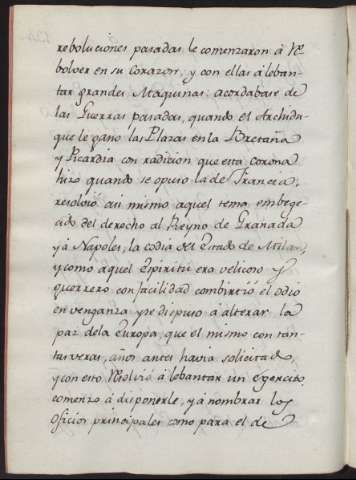 reboluciones pasadas le comenzaron à re
bolver en su Corazon, y con ellas à leban-
tar grandes Maquinas: acordabase de
las Guerras pasadas, quando el Archidu-
que le gano las Plazas en la Bretaña
y Picardia con radition que esta corona
hizo quando se opuso la de Francia,
resolvió asi mismo aquel tema embege-
cido del derecho al Reyno de Granada
y à Napoles, la codia del Estado de Milan,
y como aquel Espiritu era velicoso y
guerrero con facilidad combirtió el odio
en venganza y se dispuso à alterar la
paz de la Europa, que el mismo con tan-
tas veras, años antes havia solicitado,
y con esto resolvió à lebantar un Egercito,
comenzo à disponerle, y à nombrar los
oficios principales como para el de